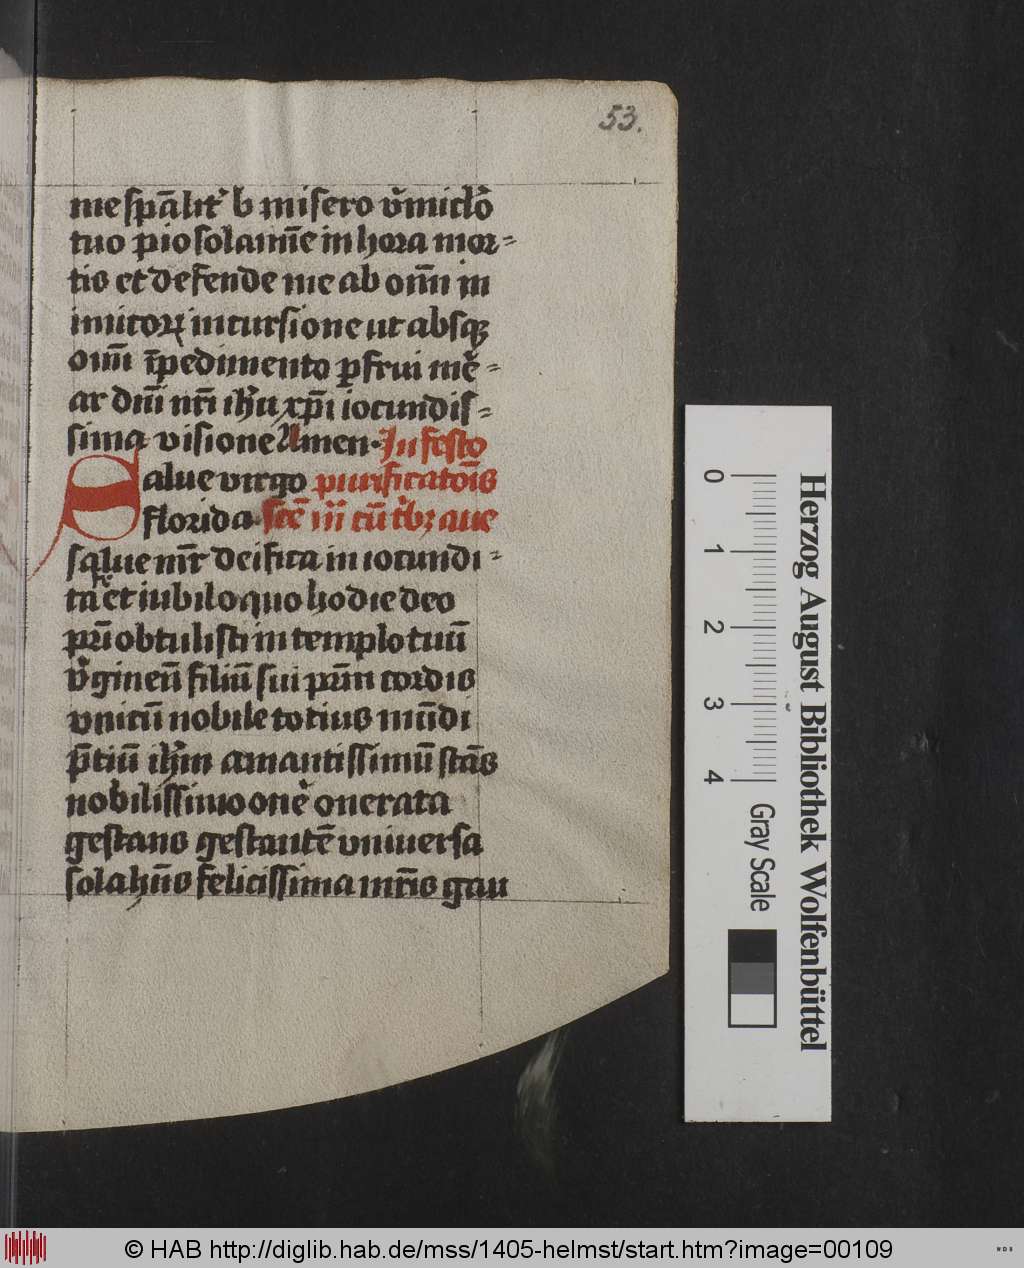 53.
me spãlit᷑ b misero v᷑micl̃o
tuo pio solamīe in hora mor-
tis et defende me ab om̄i in
imicoꝝ incursione ut absqꝫ
om̄i īpedimento ꝑfrui me᷑-
ar dm̄i nr̄i ih̄u xp̄i iocundis-
sima visione Amen. In festo
Salue virgo purificatōis
florida scē m̄ cū tbꝫ aue
salue mr̄ deifica in iocundi-
tate et iubilo quo hodie deo
pr̄i obtulisti in templo tuū
v᷑gineū filiū sui pr̄m cordis
vnicū nobile totius mūdi
p̄tiū ih̄m amantissimū stās
nobilissimo one᷑ onerata
gestans gestantē vniuersa
sola hn̄s felicissima mr̄is gau
0 1 2 3 4
Gray Scale
Herzog August Bibliothek Wolfenbüttel
© HAB http://diglib.hab.de/mss/1405-helmst/start.htm?image=00109